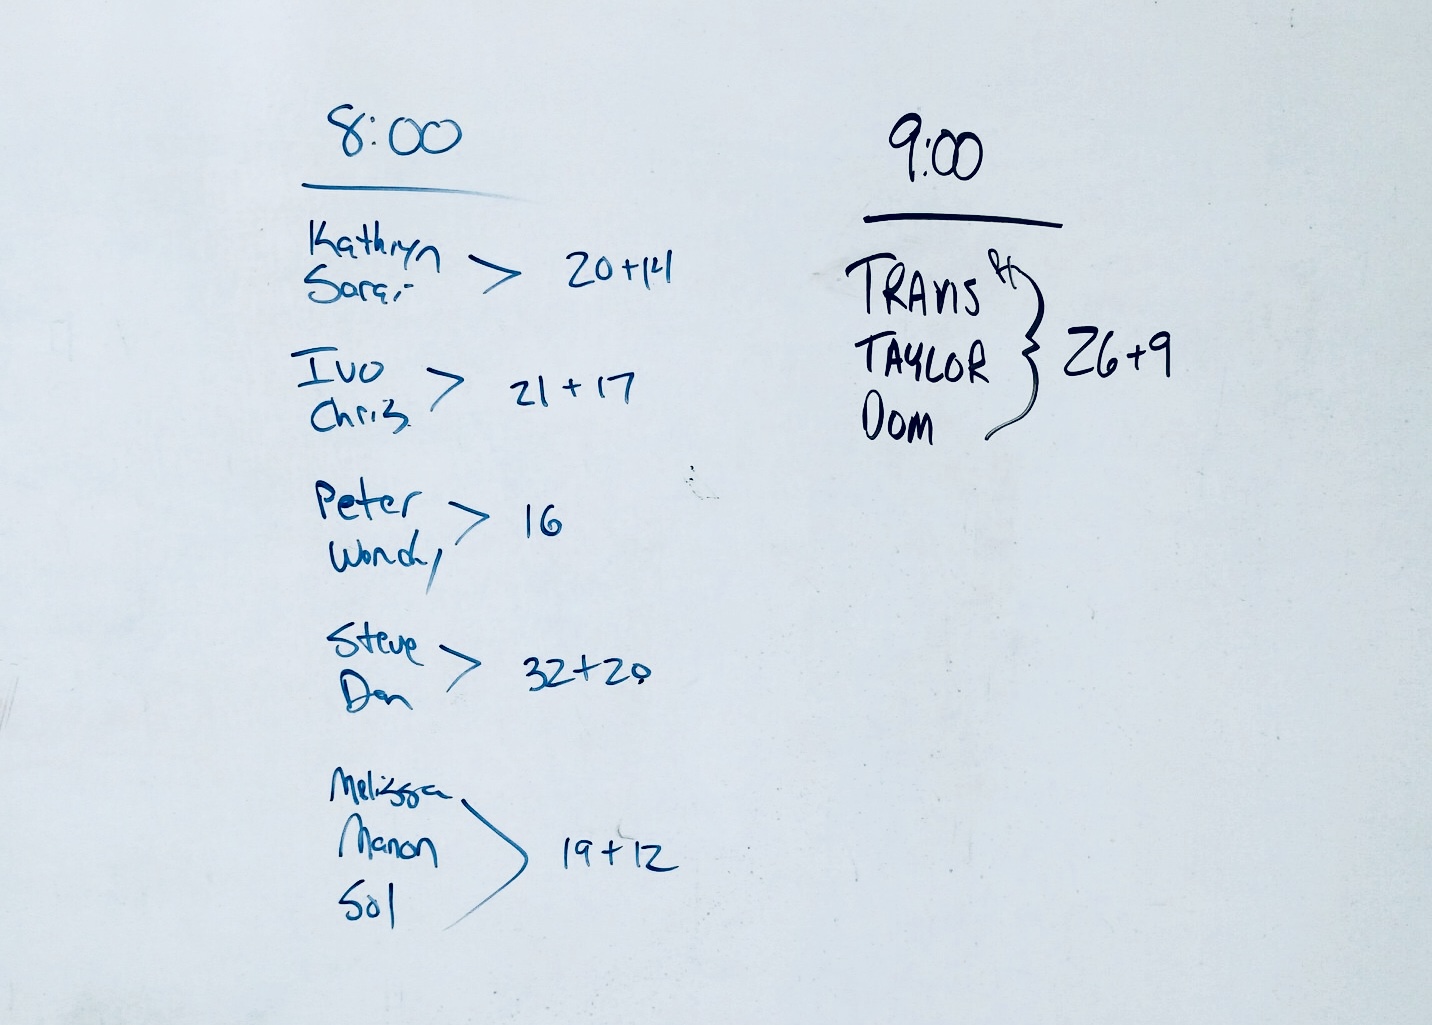 8:00
Kathryn
20+14
Ivo
Chris
21+17
Peter
16
Steve
Dan
32+20
Melissa
Manon
Sol
19+12
9:00
TRAVIS
TAYLOR
DOM
26+9